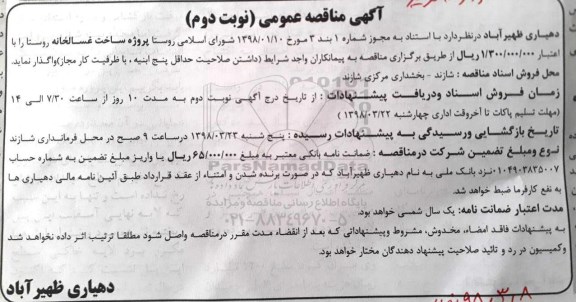 آگهی مناقصه عمومی (نوبت دوم)
دهیاری ظهیرآباد درنظردارد با استناد به مجوز شماره ۱ بند ۳ مورخ ۱۳۹۸/۰۱/۱۰ شورای اسلامی روستا پروژه ساخت غسالخانه روستا را با
اعتبار ۱/۳۰۰/۰۰۰/۰۰۰ ریال از طریق برگزاری مناقصه به پیمانکاران واجد شرایط (داشتن صلاحیت حداقل پنج ابنیه ، با ظرفیت کار مجاز)واگذار نماید.
محل فروش اسناد مناقصه : شازند - بخشداری مرکزی شازند
زمان فروش اسناد ودریافت پیشنهادات : از تاریخ درج آگهی نوبت دوم به مدت ۱۰ روز از ساعت ۷/۳۰ الی ۱۴
(مهلت تسلیم پاکات تا آخروقت اداری چهارشنبه ۱۳۹۸/۰۳/۲۲ )
تاریخ بازگشایی ورسیدگی به پیشنهادات رسیده : پنج شنبه ۱۳۹۸/۰۳/۲۳ درساعت ۹ صبح در محل فرمانداری شازند
نوع ومبلغ تضمین شرکت درمناقصه : ضمانت نامه بانکی معتبر به مبلغ ۶۵/۰۰۰/۰۰۰ ریال یا واریز مبلغ تضمین به شماره حساب
۰۱۰۴۹۰۳۸۳۵۰۰۷ نزد بانک ملی به نام دهیاری ظهیرآباد که در صورت برنده شدن و امتناء از عقد قرارداد طبق آئین نامه مالی دهیاری ها
به نفع کارفرما ضبط خواهد شد.
مدت اعتبار ضمانت نامه: یک سال شمسی خواهد بود.
به پیشنهادات فاقد امضاء، مخدوش، مشروط وپیشنهاداتی که بعد از انقضاء مدت مقرر درمناقصه واصل شود مطلقا ترتیب اثر داده نخواهد شد
وکمیسیون در رد و تائید صلاحیت پیشنهاد دهندگان مختار خواهد بود.
دهیاری ظهیرآباد
ParsNamadData
۰۲۱-۸۸۳۴۹۶۷۰-۵
۹۸,۳,۸